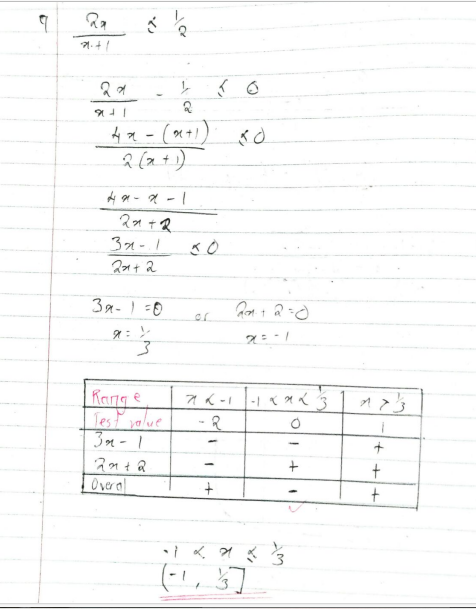 9 2x/(x+1) ≤ 1/2
2x/(x+1) - 1/2 ≤ 0
(4x - (x+1))/(2(x+1)) ≤ 0
(4x - x - 1)/(2x + 2)
(3x - 1)/(2x + 2) ≤ 0
3x - 1 = 0 or 2x + 2 = 0
x = 1/3 x = -1
Range x < -1 -1 < x < 1/3 x > 1/3
Test value -2 0 1
3x - 1 - - +
2x + 2 - + +
Overal + - +
-1 < x ≤ 1/3
(-1, 1/3]